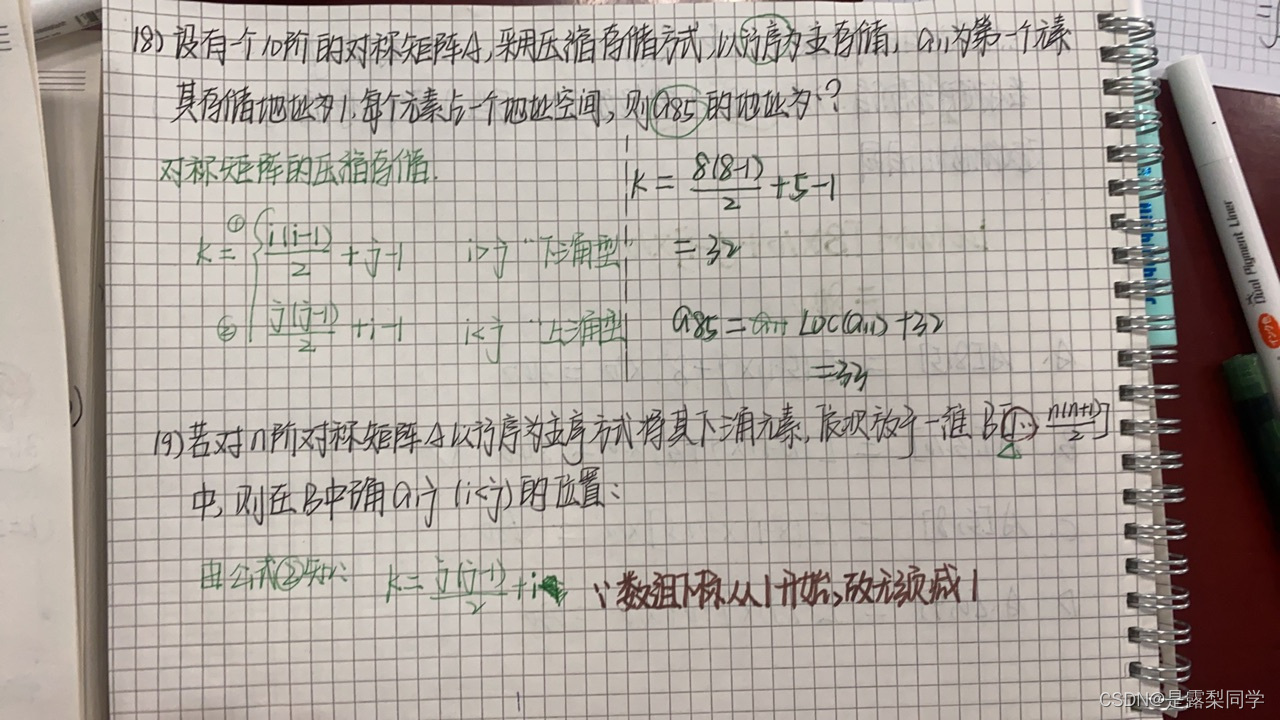 18) 设有一个10阶的对称矩阵A,采用压缩存储方式,以行序为主存储, a11为第一个元素
其存储地址为1,每个元素占一个地址空间,则a85的地址为:?
对称矩阵的压缩存储.
K = ① { i(i-1)/2 + j-1 i>j 下三角型
② j(j-1)/2 + i-1 i<j 上三角型
K = 8(8-1)/2 + 5-1
= 32
a85 = LOC(a11) + 32
= 33
19) 若对n阶对称矩阵A以行序为主序方式将其下三角元素,依次放于一维B[1..n(n+1)/2]
中,则在B中确aij (i<j)的位置:
由公式②知: K = j(j-1)/2 + i ∵数组下标从1开始,故无须减1
Dual Pigment Liner
CSDN@是露梨同学